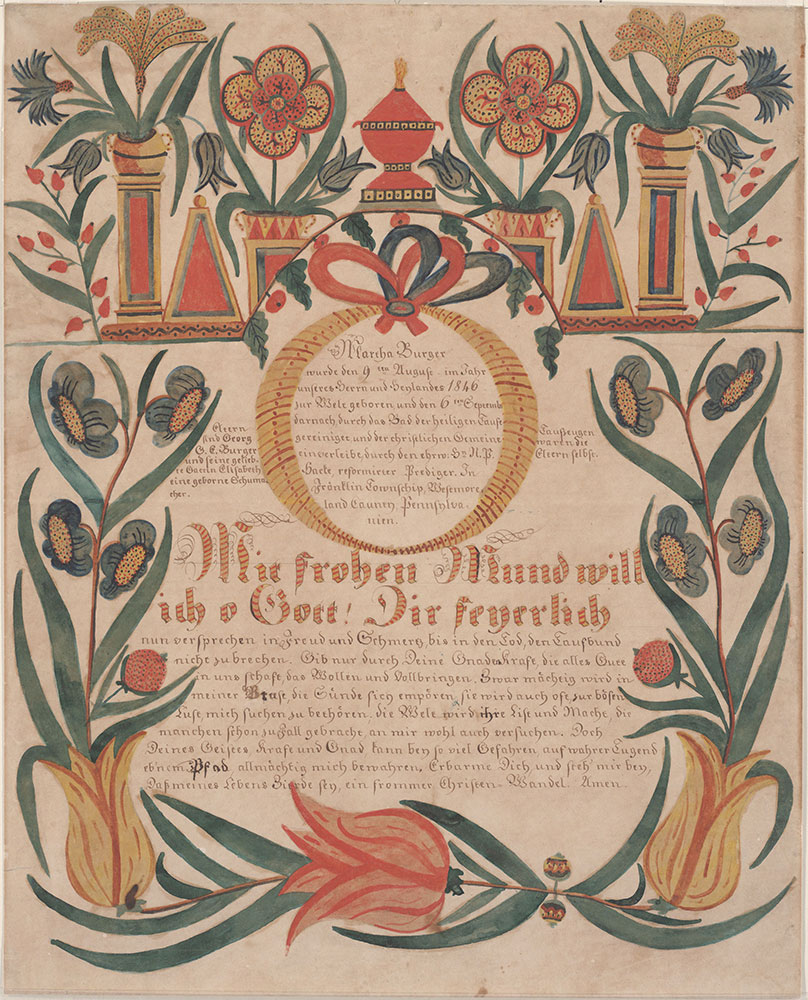 Martha Burger
wurde den 9ten August im Jahr
unseres Herrn und Heylandes 1846
zur Welt geboren, und den 6ten Septemb
darnach durch das Bad der heiligen Taufe
gereiniget und der christlichen Gemeine
einverleibt durch den ehrw. Hr N. P.
Hacke reformirter Prediger. In
Fränklin Townschip, Westmore
land Caunty, Pennsylva
nien.
Eltern
sind Georg
G. E. Burger
und seine gelieb-
te Gattin Elisabeth
eine geborne Schuma
cher.
Taufzeugen
waren die
Eltern selbst.
Mit frohen Mund will
ich o Gott! Dir feyerlich
nun versprechen in Freud und Schmertz, bis in den Tod, den Taufbund
nicht zu brechen. Gib nur durch Deine Gnadenkraft, die alles Gute
in uns schaft, das Wollen und Vollbringen. Zwar mächtig wird in
meiner Brust, die Sünde sich empören, sie wird auch oft zur bösen
Lust, mich suchen zu bethören, die Welt wird ihre List und Macht, die
manchen schon zu Fall gebracht, an mir wohl auch versuchen. Doch
Deines Geistes Kraft und Gnad kann bey so viel Gefahren, auf wahrer Tugend
eb'nem Pfad allmächtig mich bewahren. Erbarme Dich und steh' mir bey,
Daß meines Lebens Zierde sey, ein frommer Christen-Wandel. Amen.